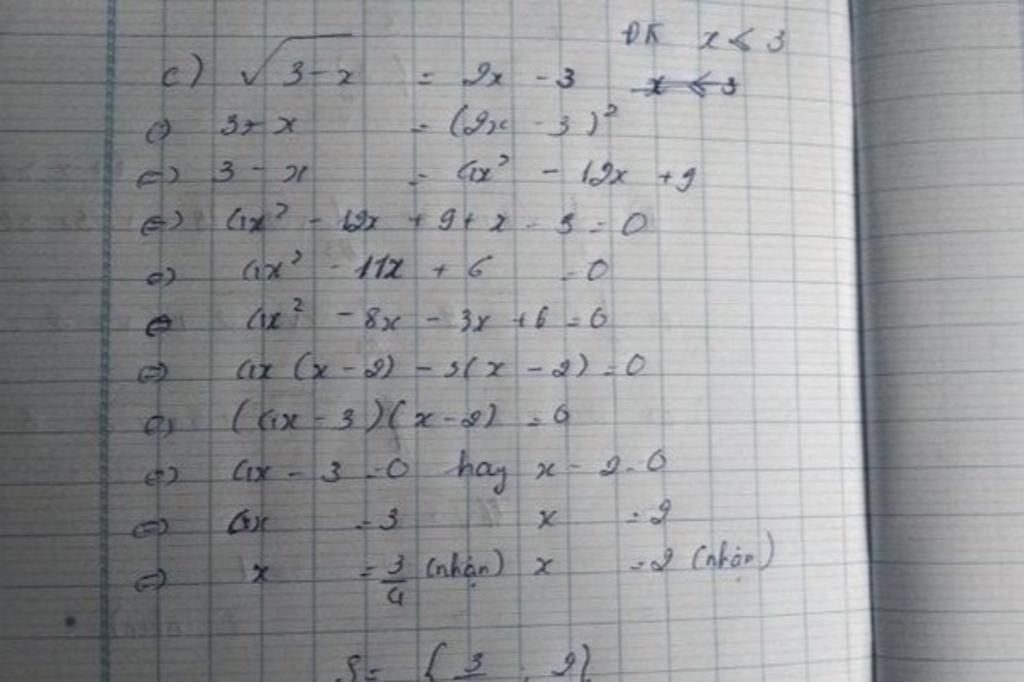 ĐK x ≤ 3
c) √(3 - x) = 2x - 3
⇔ 3 - x = (2x - 3)²
⇔ 3 - x = 4x² - 12x + 9
⇔ 4x² - 12x + 9 + x - 3 = 0
⇔ 4x² - 11x + 6 = 0
⇔ 4x² - 8x - 3x + 6 = 0
⇔ 4x (x - 2) - 3(x - 2) = 0
⇔ (4x - 3)(x - 2) = 0
⇔ 4x - 3 = 0 hay x - 2 = 0
⇔ 4x = 3 x = 2
⇔ x = 3/4 (nhận) x = 2 (nhận)
S = { 3 , 2}